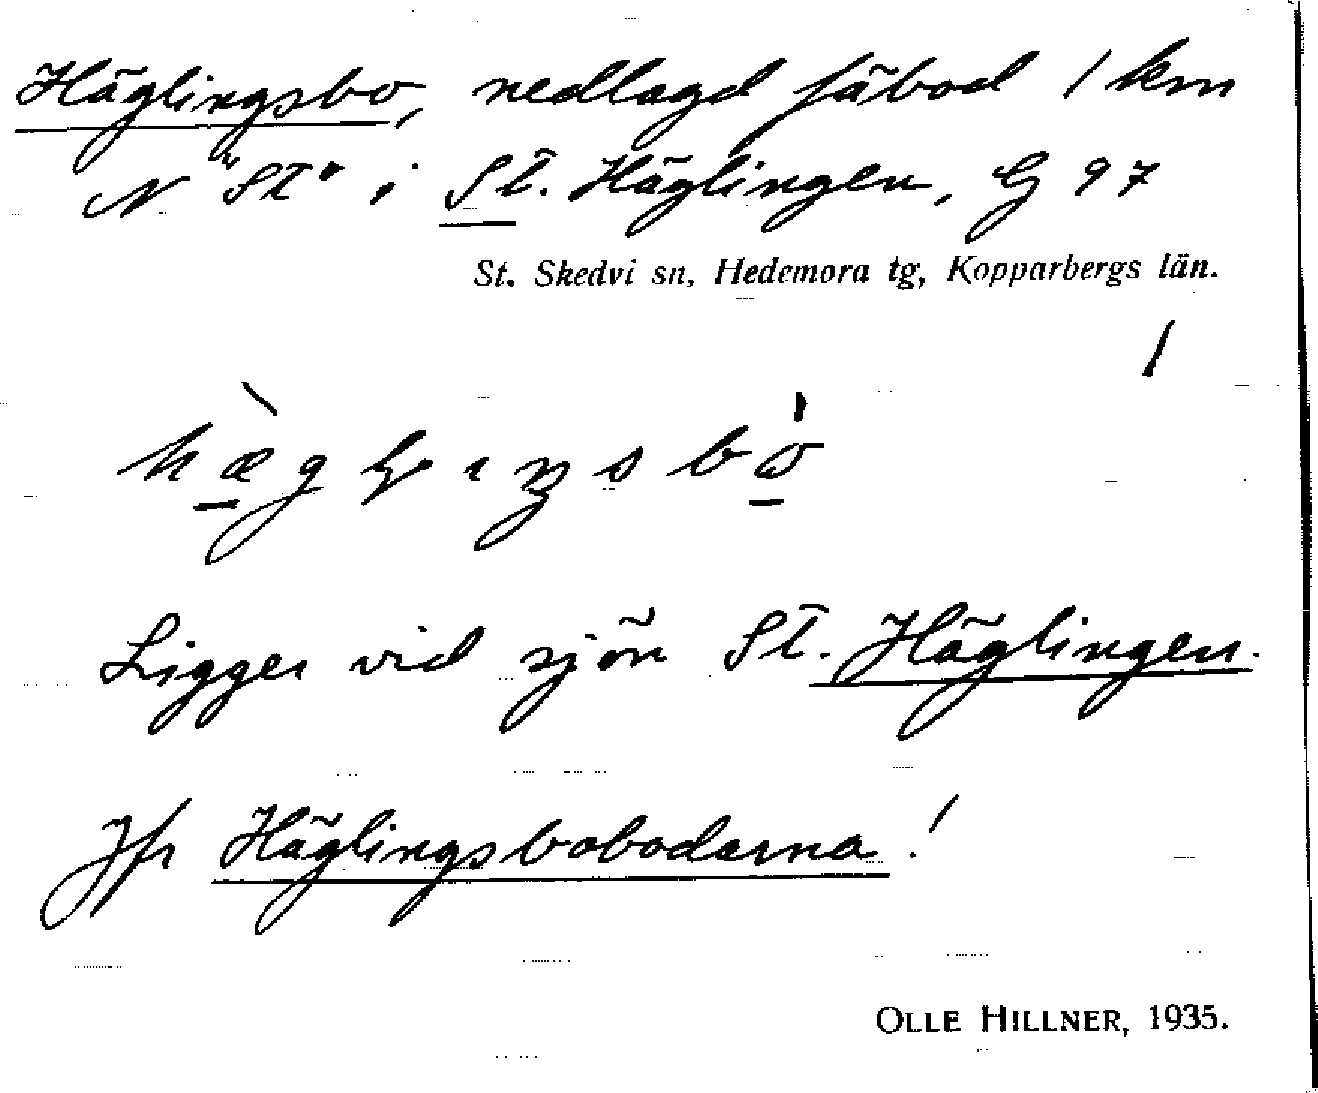 Häglingsbo, nedlagd fäbod 1 km
N "St" i St. Häglingen, G 97
St. Skedvi sn, Hedemora tg, Kopparbergs län.
Ligger vid sjön St. Häglingen.
Jfr Häglingsbobodarna!
OLLE HILLNER, 1935.